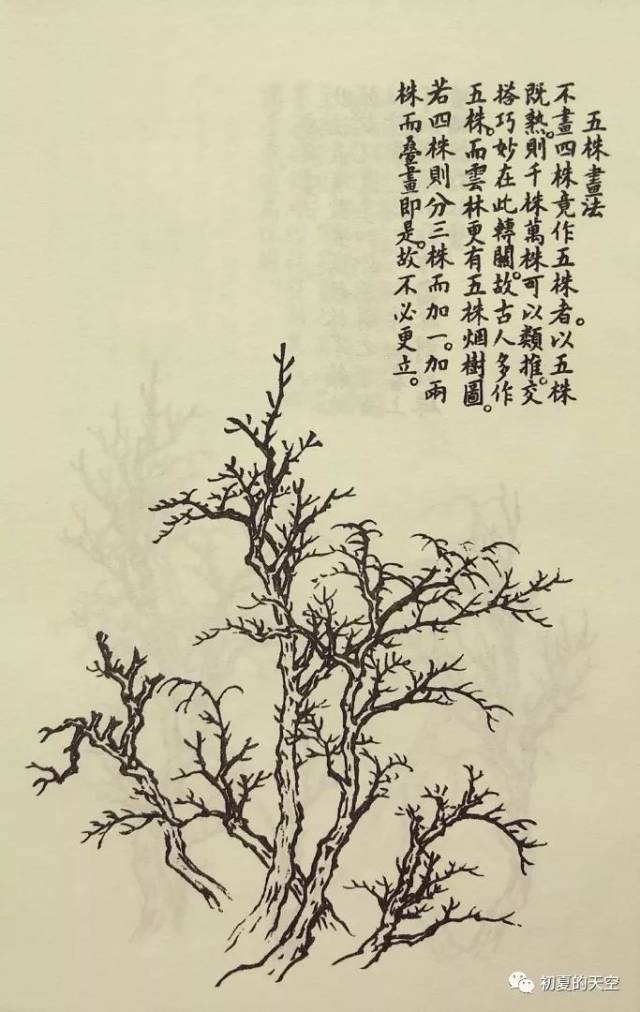 五株畫法
不畫四株竟作五株者。以五株
既熟。則千株萬株可以類推。交
搭巧妙在此轉關。故古人多作
五株。而雲林更有五株烟樹圖。
若四株則分三株而加一。加兩
株而疊畫即是。故不必更立。
初夏的天空